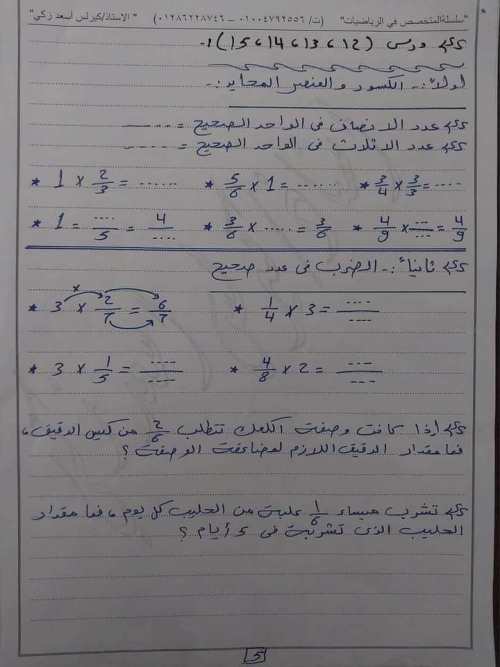 "سلسلة المتخصص في الرياضيات" (ت/ ٠١٠٠٤٧٩٢٥٥٦ – ٠١٢٨٦٢٢٨٧٤٦) "الاستاذ/كيرلس أسعد زكي"
درس (12، 13، 14، 15) :-
أولاً :- الكسور والعنصر المحايد :-
عدد الأنصاف فى الواحد الصحيح = ........
عدد الأثلاث فى الواحد الصحيح = ........
* 1 × 2/3 = ...... * 5/6 × 1 = ....... * 3/4 × 3/3 = ....
* 1 = ..../5 = 4/.... * 3/6 × ..... = 3/6 * 4/9 × .../... = 4/9
ثانياً :- الضرب فى عدد صحيح
* 3 × 2/7 = 6/7 * 1/4 × 3 = ..../....
* 3 × 1/5 = ..../.... * 4/8 × 2 = ..../....
إذا كانت وصفة الكعك تتطلب 2/6 من كيس الدقيق،
فما مقدار الدقيق اللازم لمضاعفة الوصفة ؟
تشرب ميساء 1/6 علبة من الحليب كل يوم، فما مقدار
الحليب الذى تشربة فى 5 أيام ؟
5